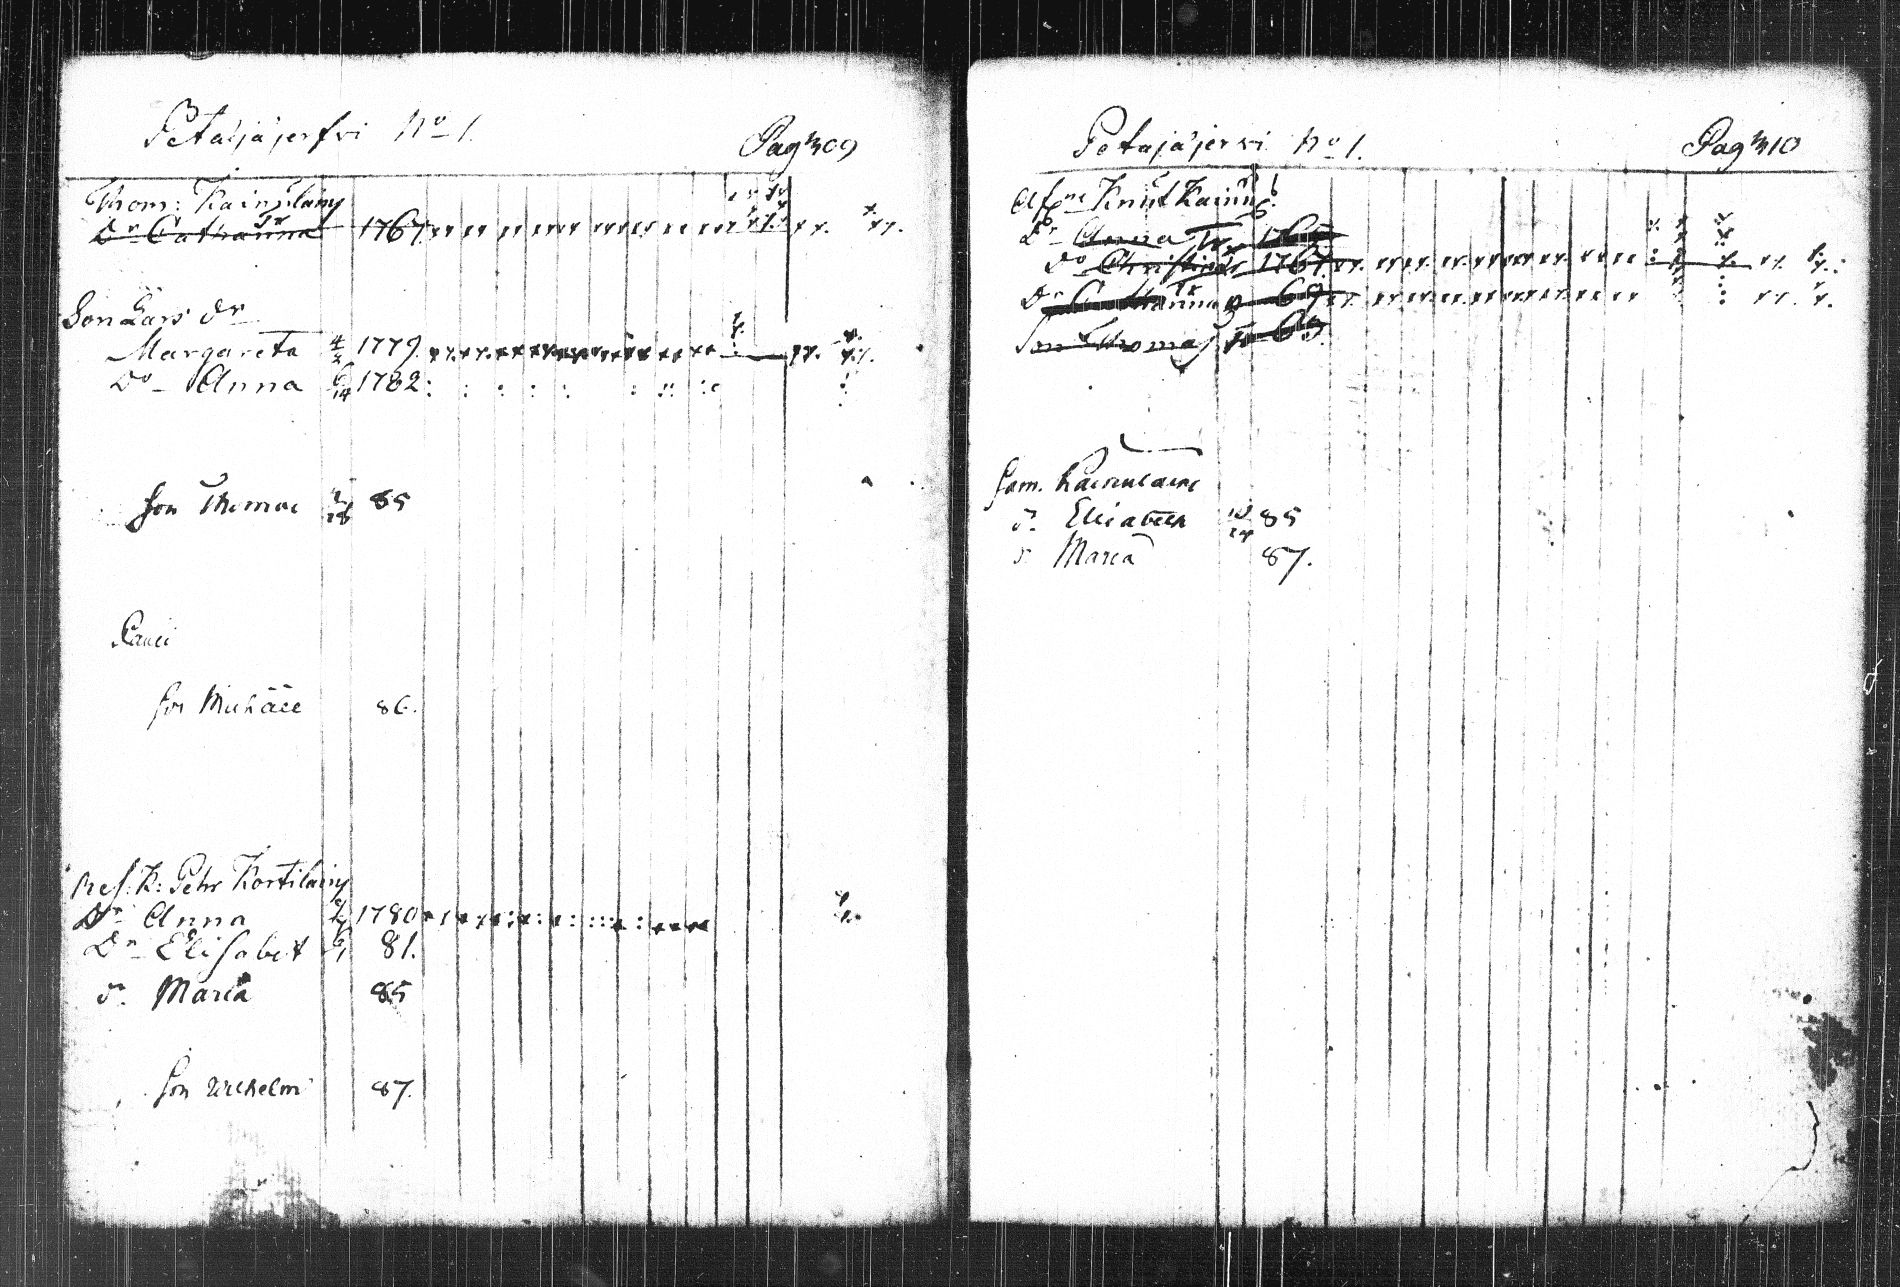 Petäjäjerfvi No 1.
Pag 309
Thom: Kainulainȝ
Dr Catharina 1767
Son Lars dr
Margareta 4/3 1779.
Do Anna 6/14 1782
Son Thomas 85
Pauli
Son Michäel 86.
Pehr Kortilainȝ
Dr Anna 1780
Dr Elisabet 81.
dr Maria 85
Son Wilhelm 87.
Petäjäjervi No 1.
Pag 310
Knut Kainu
Dr Anna 1765
Do Christina 1767
Dr 69
Son Thomas
Sam. Kainulaine
dr. Elisabeth 85
dr Maria 87.